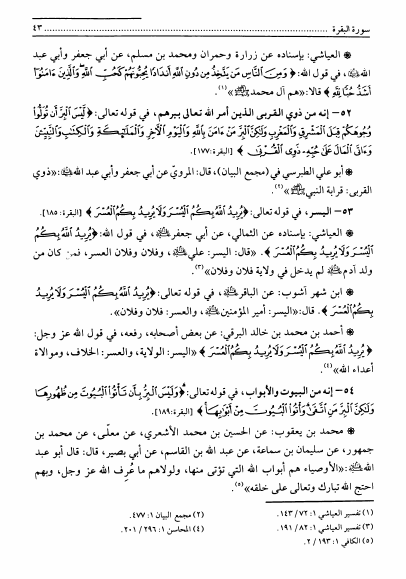 سورة البقرة ..... ٤٣
❁ العياشي: بإسناده عن زرارة وحمران ومحمد بن مسلم، عن أبي جعفر وأبي عبد
الله، في قول الله: ﴿وَمِنَ النَّاسِ مَن يَتَّخِذُ مِن دُونِ اللَّهِ أَندَادًا يُحِبُّونَهُمْ كَحُبِّ اللَّهِ وَالَّذِينَ ءَامَنُوا
أَشَدُّ حُبًّا لِّلَّهِ﴾ قالا: «هم آل محمد»(١).
٥٢ - إنه من ذوي القربى الذين أمر الله تعالى ببرهم، في قوله تعالى: ﴿لَّيْسَ الْبِرَّ أَن تُوَلُّوا
وُجُوهَكُمْ قِبَلَ الْمَشْرِقِ وَالْمَغْرِبِ وَلَكِنَّ الْبِرَّ مَنْ ءَامَنَ بِاللَّهِ وَالْيَوْمِ الْآخِرِ وَالْمَلَائِكَةِ وَالْكِتَابِ وَالنَّبِيِّينَ
وَءَاتَى الْمَالَ عَلَى حُبِّهِ ذَوِي الْقُرْبَى﴾ [البقرة: ١٧٧].
❁ أبو علي الطبرسي في (مجمع البيان)، قال: المرويّ عن أبي جعفر وأبي عبد الله: «ذوي
القربى: قرابة النبي»(٢)
٥٣ - اليسر، في قوله تعالى: ﴿يُرِيدُ اللَّهُ بِكُمُ الْيُسْرَ وَلَا يُرِيدُ بِكُمُ الْعُسْرَ﴾ [البقرة: ١٨٥].
❁ العياشي: بإسناده عن الثمالي، عن أبي جعفر، في قول الله: ﴿يُرِيدُ اللَّهُ بِكُمُ
الْيُسْرَ وَلَا يُرِيدُ بِكُمُ الْعُسْرَ﴾. «قال: اليسر: علي، وفلان وفلان العسر، فمن كان من
ولد آدم لم يدخل في ولاية فلان وفلان»(٣).
❁ ابن شهر آشوب: عن الباقر، في قوله تعالى: ﴿يُرِيدُ اللَّهُ بِكُمُ الْيُسْرَ وَلَا يُرِيدُ
بِكُمُ الْعُسْرَ﴾. قال: «اليسر: أمير المؤمنين، والعسر: فلان وفلان».
❁ أحمد بن محمد بن خالد البرقي: عن بعض أصحابه، رفعه، في قول الله عز وجل:
﴿يُرِيدُ اللَّهُ بِكُمُ الْيُسْرَ وَلَا يُرِيدُ بِكُمُ الْعُسْرَ﴾ «اليسر: الولاية، والعسر: الخلاف، وموالاة
أعداء الله»(٤).
٥٤ - إنه من البيوت والأبواب، في قوله تعالى: ﴿وَلَيْسَ الْبِرُّ بِأَن تَأْتُوا الْبُيُوتَ مِن ظُهُورِهَا
وَلَكِنَّ الْبِرَّ مَنِ اتَّقَى وَأْتُوا الْبُيُوتَ مِنْ أَبْوَابِهَا﴾ [البقرة: ١٨٩].
❁ محمد بن يعقوب: عن الحسين بن محمد الأشعري، عن معلّى، عن محمد بن
جمهور، عن سليمان بن سماعة، عن عبد الله بن القاسم، عن أبي بصير، قال: قال أبو عبد
الله: «الأوصياء هم أبواب الله التي تؤتى منها، ولولاهم ما عُرف الله عز وجل، وبهم
احتج الله تبارك وتعالى على خلقه»(٥).
(١) تفسير العياشي ١: ٧٢/ ١٤٣. (٢) مجمع البيان ١: ٤٧٧.
(٣) تفسير العياشي ١: ٨٢/ ١٩١. (٤) المحاسن ١: ٢٩٦/ ٢٠١.
(٥) الكافي ١: ١٩٣/ ٢.